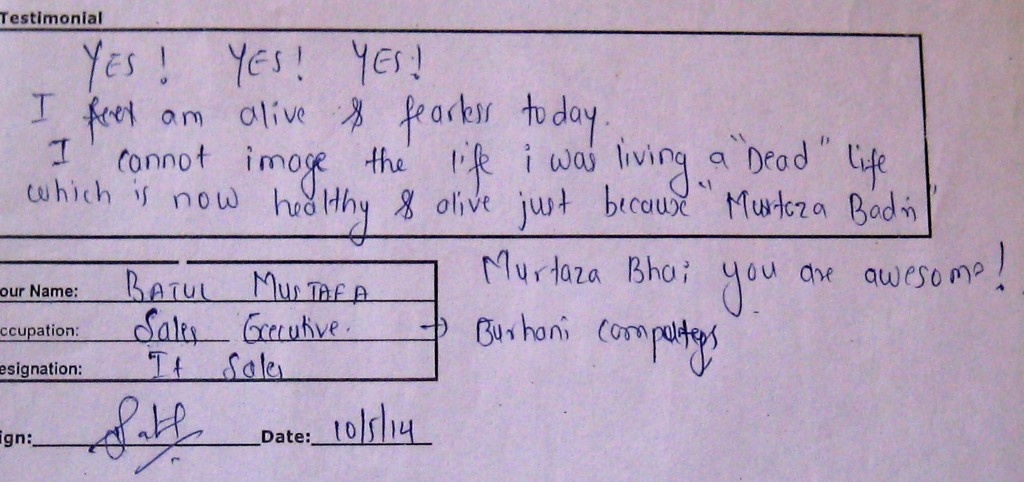 Testimonial
YES! YES! YES!
I am alive & fearless today.
I cannot image the life i was living a "Dead" life
which is now healthy & alive just because "Murtaza Badri"
Murtaza Bhai you are awesome!
our Name: BATUL MUSTAFA
ccupation: Sales Executive. → Burhani computers
esignation: It Sales
ign: Date: 10/5/14